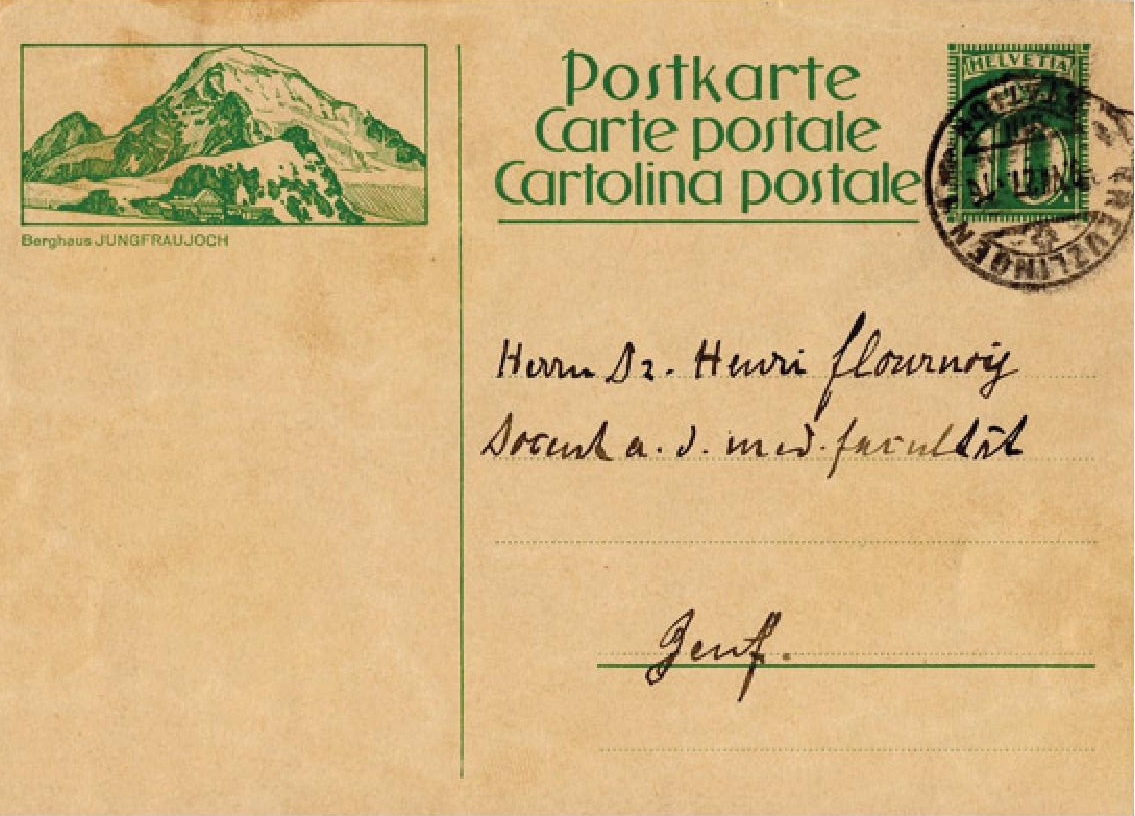 Postkarte
Carte postale
Cartolina postale
HELVETIA
10
KREUZLINGEN
Berghaus JUNGFRAUJOCH
Herrn Dr. Henri Flournoÿ
Docent a. d. med. Facultät
Genf.